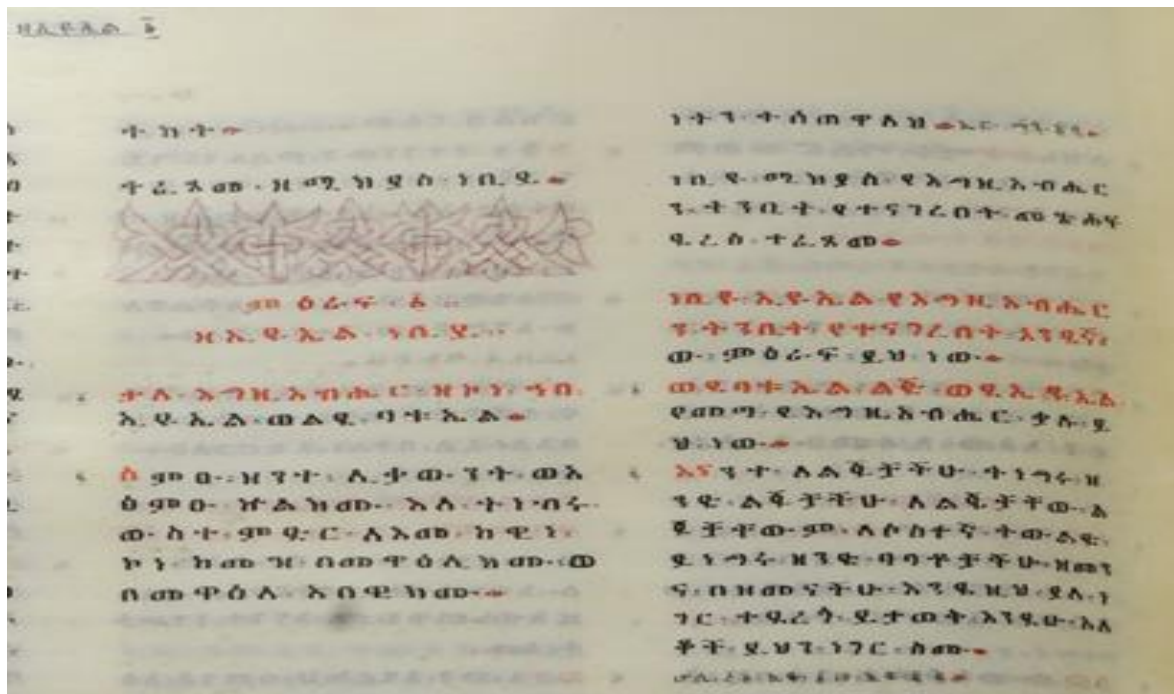 ዘኢዩኤል ፩
ትከት።
ተፈጸመ፡ዘሚክያስ፡ነቢይ።
ምዕራፍ ፩
ዘኢዩኤል፡ነቢይ።
ቃለ፡እግዚአብሔር፡ዘኮነ፡ኀበ፡
ኢዩኤል፡ወልደ፡ባቱኤል።
ስምዑ፡ዝንተ፡ሊቃውንት፡ወአ
ፅምዑ፡ኵልክሙ፡እለ፡ትነብሩ፡
ውስተ፡ምድር፡ለእመ፡ከዊነ፡
ኮነ፡ከመዝ፡በመዋዕሊክሙ፡ወ
በመዋዕለ፡አበዊክሙ።
ነትን፡ትሰጠዋለህ።
ነቢዩ፡ሚክያስ፡የእግዚአብሔር
ን፡ትንቢት፡የተናገረበት፡መጽሐፍ
ዲረስ፡ተፈጸመ።
ነቢዩ፡ኢዩኤል፡የእግዚአብሔር
ን፡ትንቢት፡የተናገረበት፡አንደኛ፡
ው፡ምዕራፍ፡ይህ፡ነው።
ወደ፡ባቱኤል፡ልጅ፡ወደ፡ኢዩኤል
የመጣ፡የእግዚአብሔር፡ቃሉ፡ይ
ህ፡ነው።
እናንተ፡ለልጆቻችሁ፡ትነግሩ፡ዘ
ንድ፡ልጆቻችሁ፡ለልጆቻቸው፡ል
ጆቻቸውም፡ለሶስተኛ፡ትውልድ፡
ይነግሩ፡ዘንድ፡ባባቶቻችሁ፡ዘመን
ና፡በዘመናችሁ፡እንዲህ፡ያለ፡ነ
ገር፡ተደረጎ፡ይታወት፡እንደሁ፡አለ
ቆች፡ይህን፡ነገር፡ስሙ።